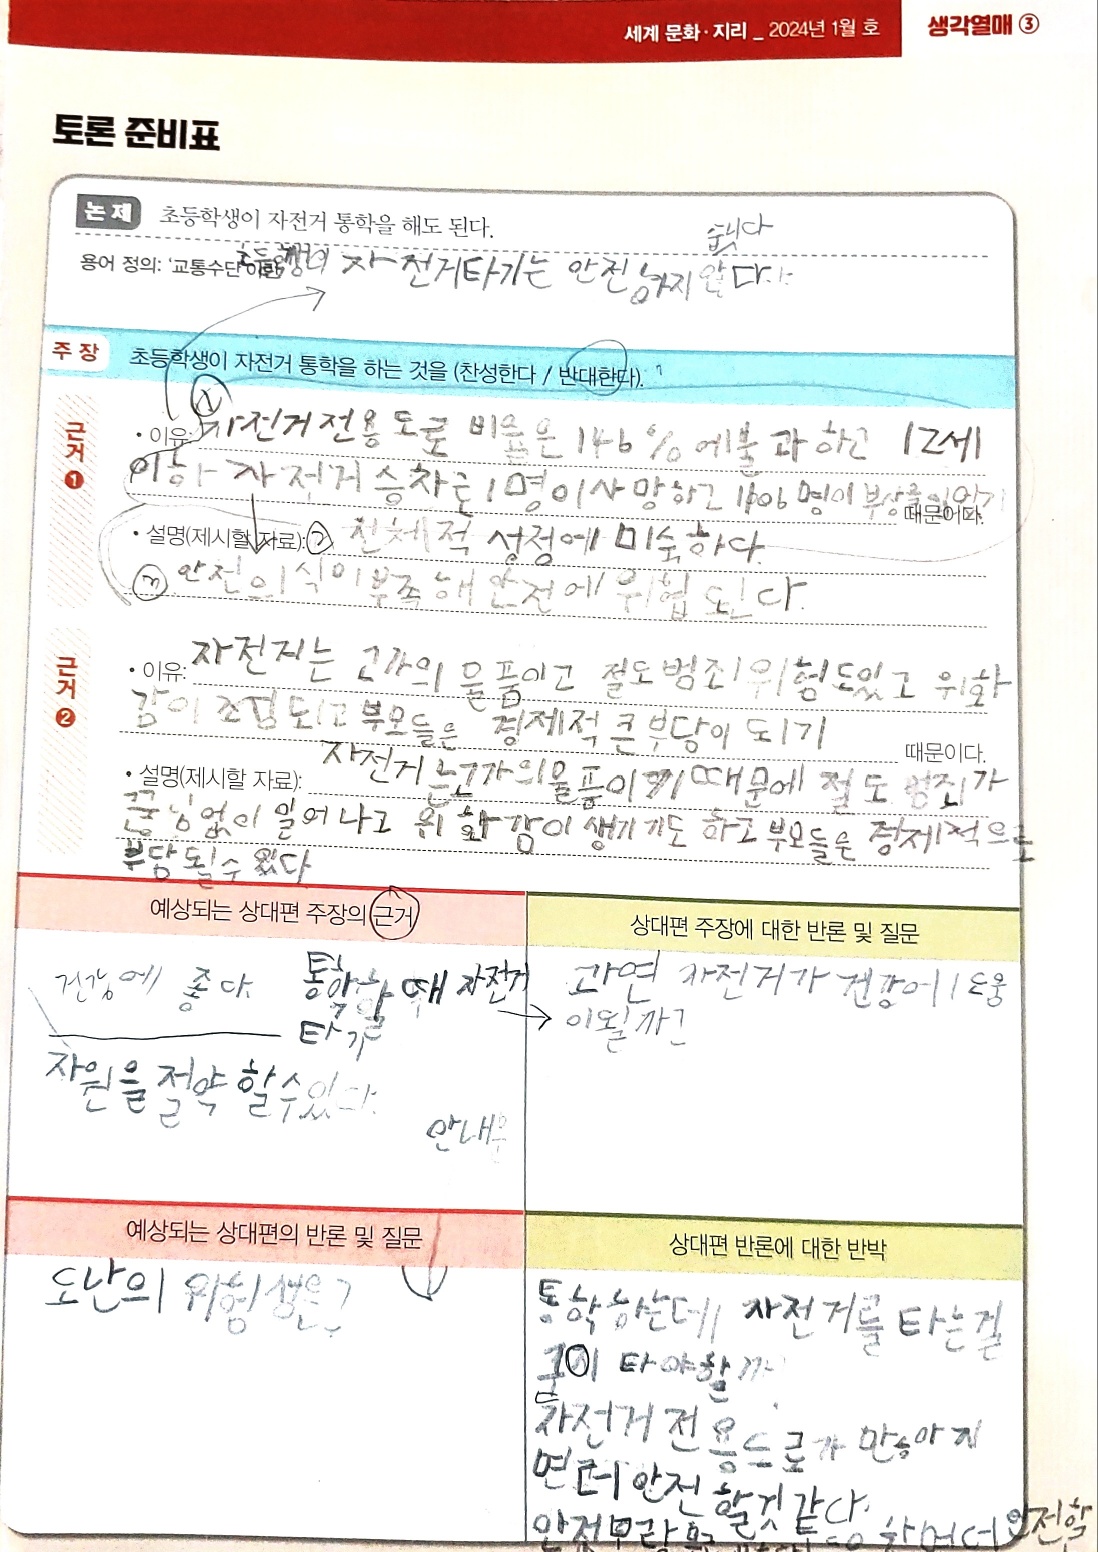 세계 문화·지리 _ 2024년 1월 호 생각열매 ③
토론 준비표
논제 초등학생이 자전거 통학을 해도 된다.
쉽니다
용어 정의: '교통수단 이함 자전거타기는 안전하지 않다.
주장 초등학생이 자전거 통학을 하는 것을 (찬성한다 / 반대한다).
근거 ❶
• 이유: ① 자전거 전용도로 비율은 %에불과하고 12세
이하 자전거 승차로 1명이사망하고 명이 부상을
때문이다.
• 설명(제시할 자료): ② 적 성정에 미숙하다.
③ 안전의식이 부족해 안전에 위협 된다.
근거 ❷
• 이유: 자전거는 고가의 물품이고 절도범죄위험도있고 위화
감이 조검되고 부모들은 경제적 큰부담이 되기
때문이다.
• 설명(제시할 자료): 자전거는고가의물품이기 때문에 절도 범죄가
끊님없이 일어나고 위화감이 생기기도 하고 부모들은 경제적으로
부담 될수 있다
예상되는 상대편 주장의 근거
건강에 좋다. 통학할 때 자전거
타기
자원을 절약 할수있다.
안내문
상대편 주장에 대한 반론 및 질문
과연 자전거가 건강에 도움
이될까?
예상되는 상대편의 반론 및 질문
도난의 위험성은?
상대편 반론에 대한 반박
통학하는데 자전거를 타는걸
굳이 타야할까
자전거 전용도로가 만아지
면 더 안전 할것 같다.